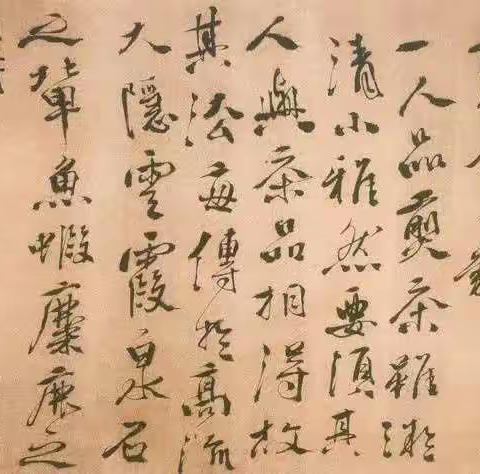 一人品煎茶雖微
清小雅然要須其
人與茶品相得故
其法每傳於高流
大隱雲霞泉石
之輩魚蝦麋鹿之